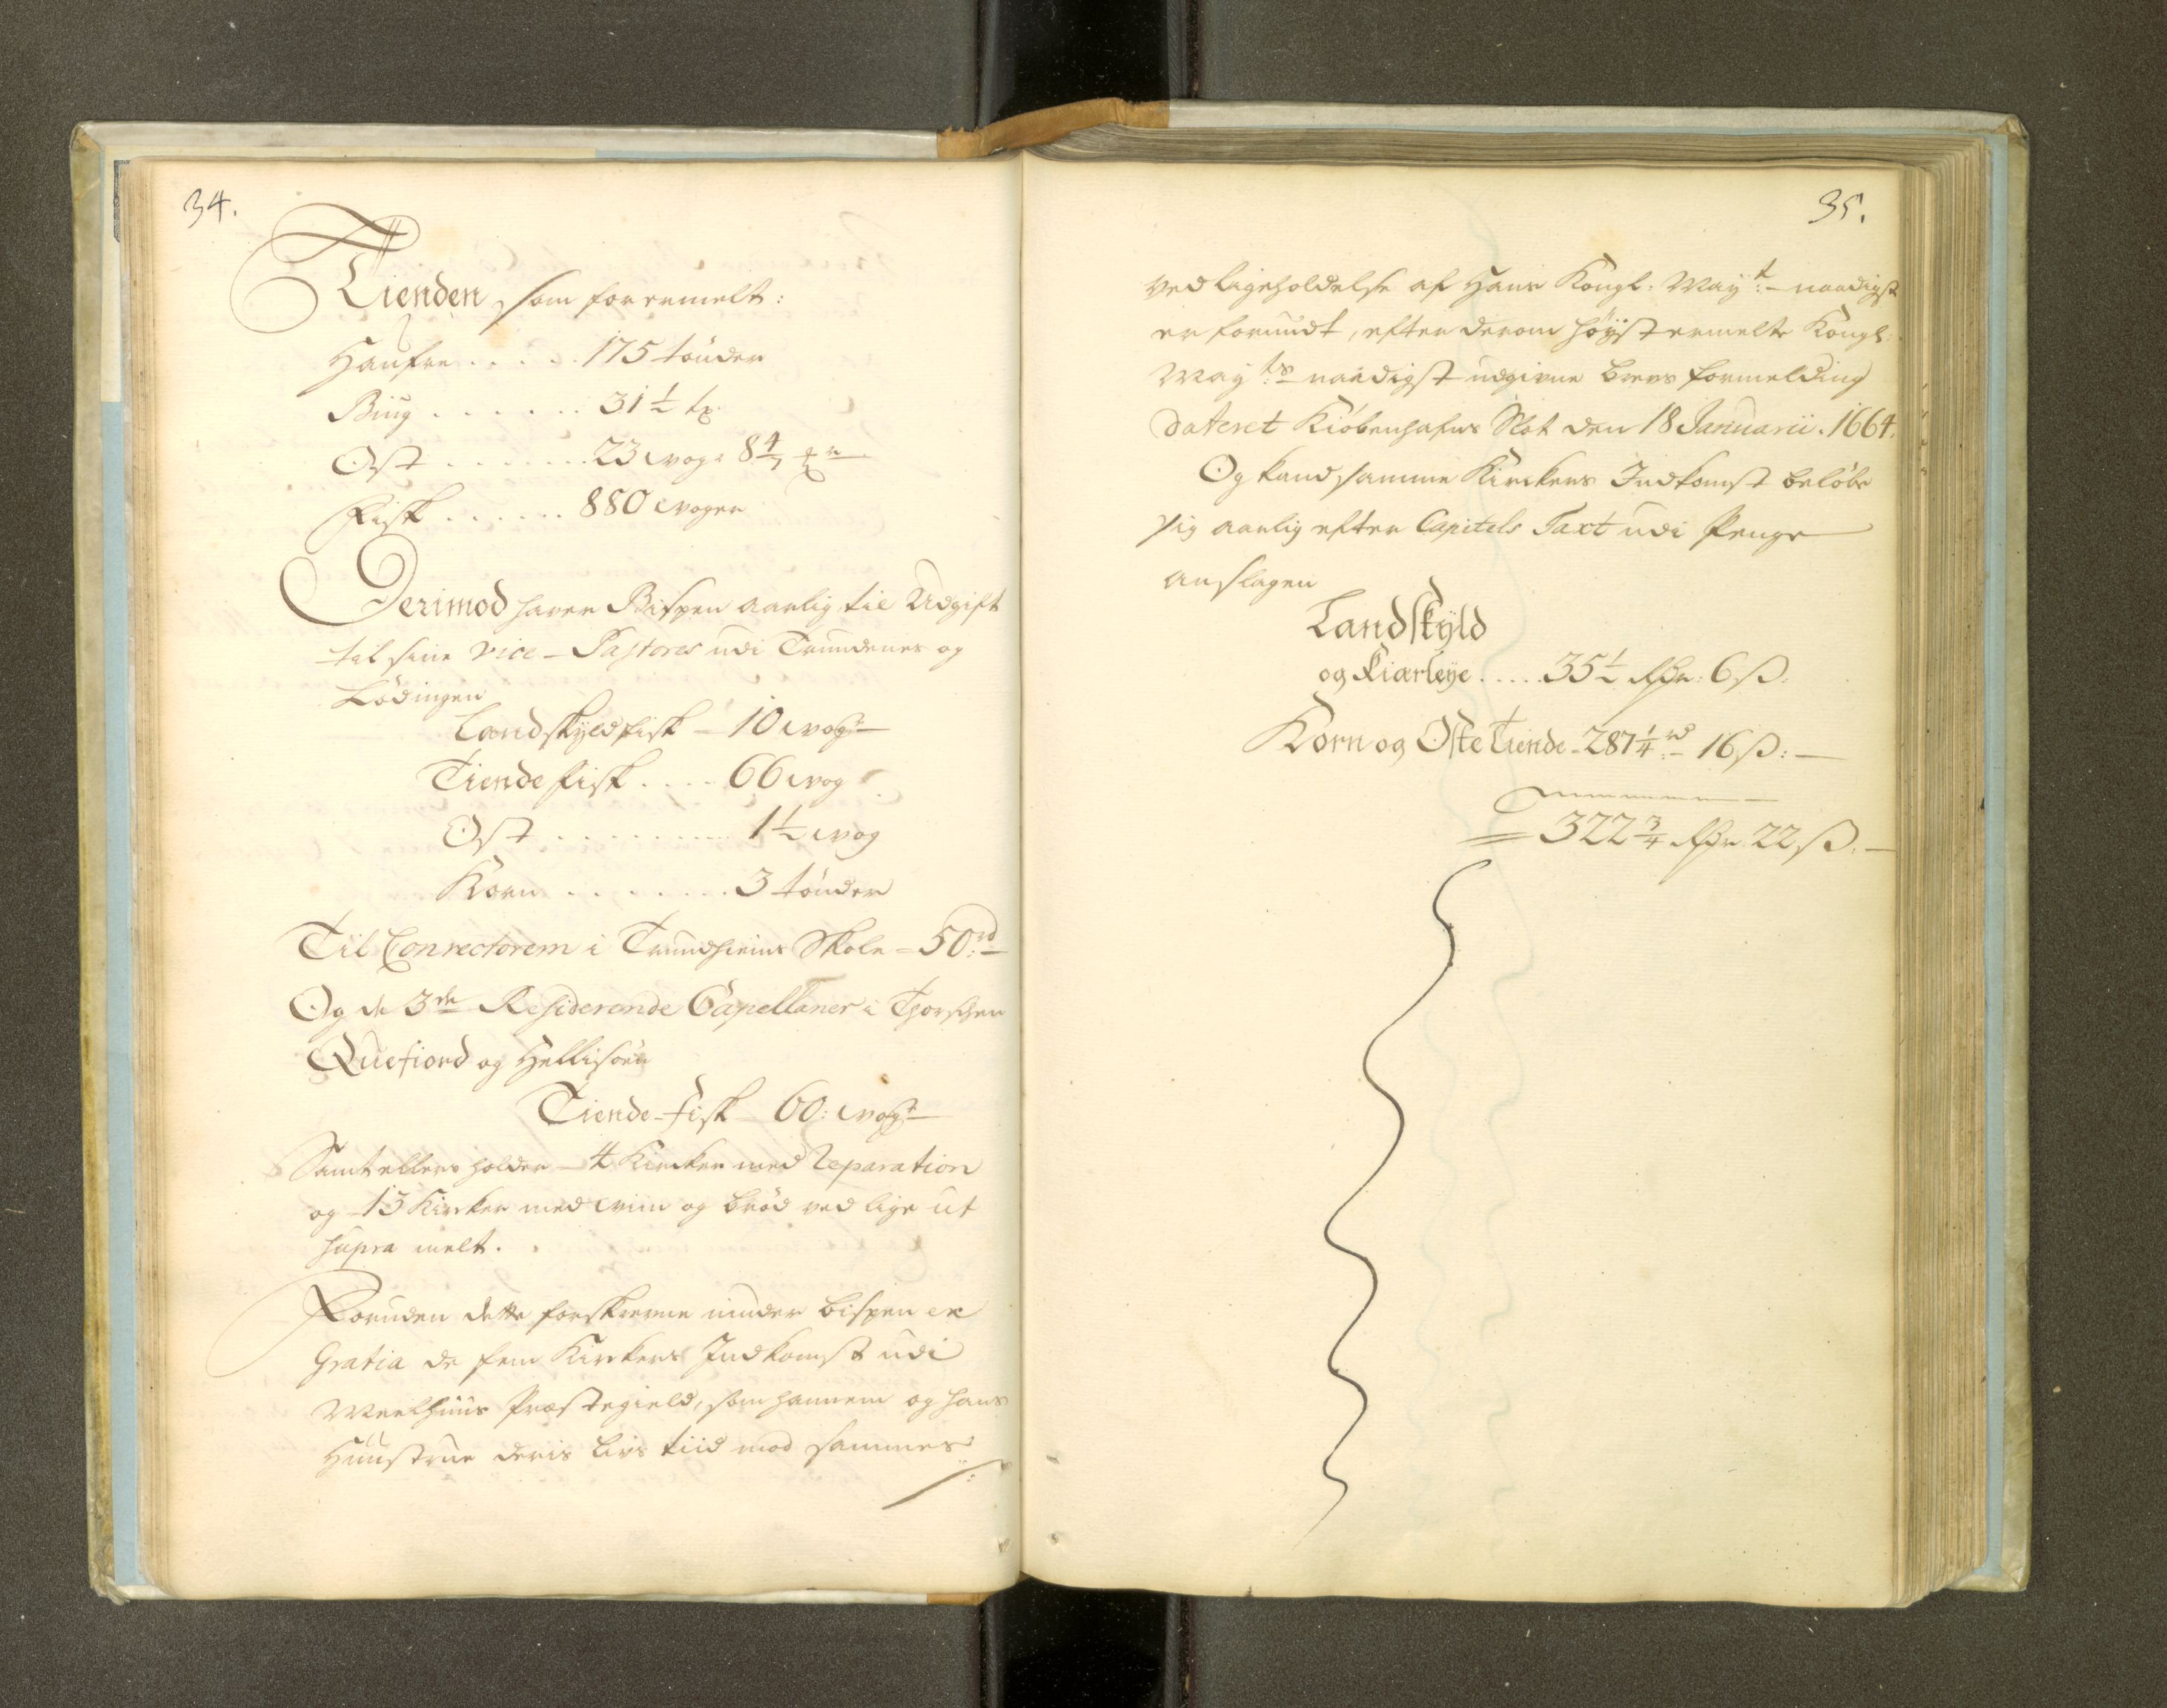 34.
Tienden som forermelt:
Haufre ..... 175 tönder
Biug ...... 31½ tr.
Ost ....... 23 woge 8 4/7
Fisk ...... 880 woger
Derimod haver Bispen aarlig til Udgift
til sine Vice-Pastores udi Trundenes og
Lödingen
Landskyldfisk – 10 wog
Tiende fisk .... 66 wog
Ost ......... 1½ wog
Korn ........ 3 tönder
Til Conrectorem i Trundhiems Skole – 50 rd
Og de 3de Residerende Capellaner i
Quefiord og Hellisöen
Tiende-fisk 60: wog
Samt ellers holder – 4 Kircker med Reparation
og 13 Kircker med wiin og bröd ved lige ut
supra melt.
Foruden dette forskrevne niuder bispen ex
Gratia de fem Kirckers Indkomst udi
Meelhuus Præstegield, som hannem og hans
Huustrue deris livs tiid mod sammes
35.
vedligeholdelse af Hans Kongl. Mayt: naadigst
er forundt, efter derom höyst ermelte Kongl:
Mayts: naadigst udgivne brevs formelding
dateret Kiöbenhafns Slot den 18 Januarii. 1664.
Og kand samme Kirckers Indkomst belöbe
sig aarlig efter Capitels Taxt udi Penge
anslagen
Landskyld
og Kiørleye ..... 35½ Rdr: 6 ß:
Korn og Oste Tiende – 287¼ rd 16 ß: –
= 322¾ Rdr. 22 ß. –